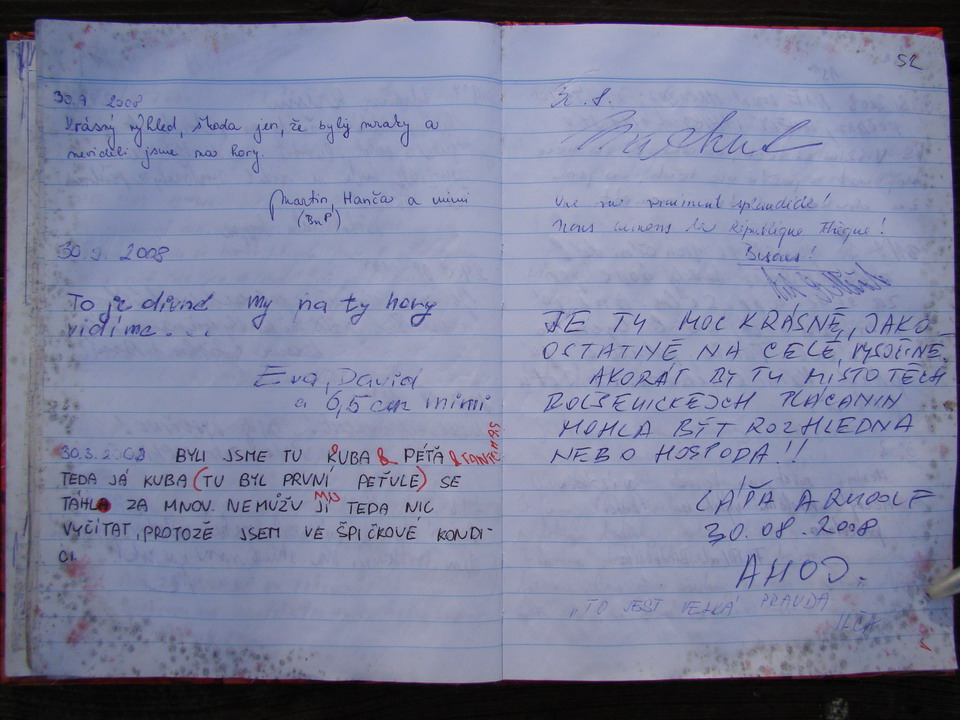 30.9 2008
Krásný výhled, škoda jen, že byly mraky a
neviděli jsme na hory.
Martin, Hanča a mimi
(BnP)
30 9 2008
To je divné my na ty hory
vidíme...
Eva, David
a 6,5 cm mimi
30.3.2008 BYLI JSME TU KUBA & PÉŤA &
TEDA JÁ KUBA (TU BYL PRVNÍ PEŤULE) SE
TÁHLA ZA MNOV. NEMŮŽU JÍ MU TEDA NIC
VYČÍTAT, PROTOŽE JSEM VE ŠPIČKOVÉ KONDI-
CI.
52
Vue vraiment splendide!
Nous aimons la République Tchèque!
Bisous!
JE TU MOC KRÁSNĚ, JAKO
OSTATNĚ NA CELÉ VYSOČINĚ.
AKORÁT BY TU MÍSTO TĚCH
BOLŠEVICKEJCH PLÁCANIN
MOHLA BÝT ROZHLEDNA
NEBO HOSPODA!!
LÁĎA A RUDOLF
30.08.2008
AHOJ.
„TO JEST VELKÁ PRAVDA